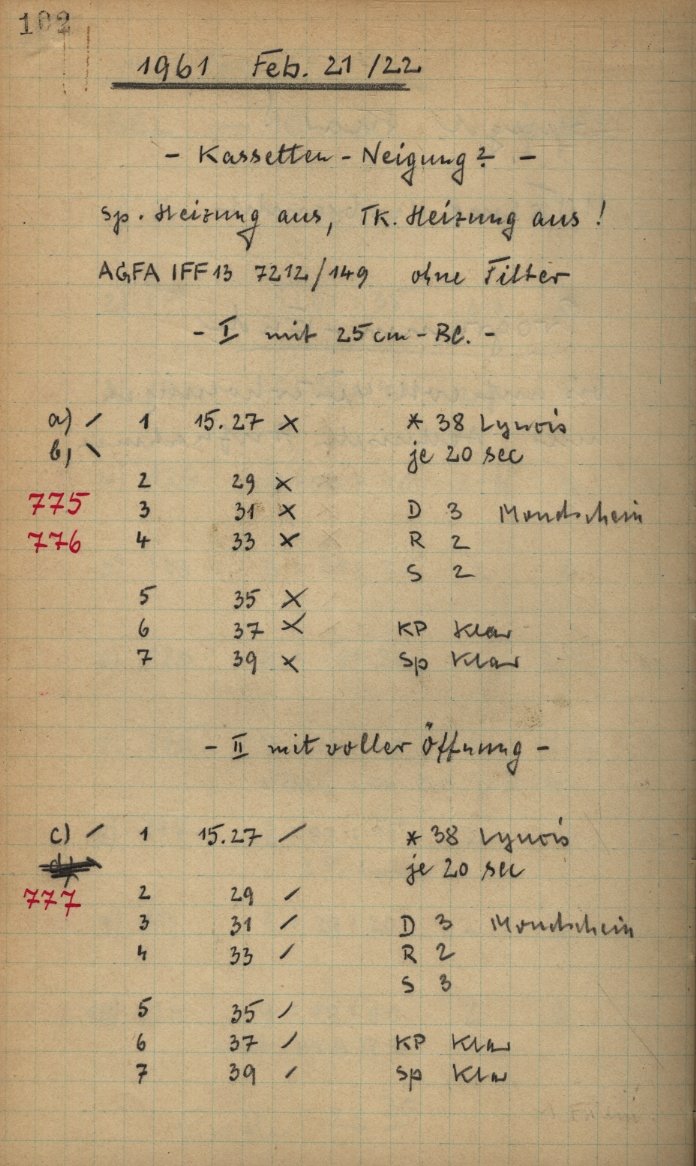 102
1961 Feb. 21/22
- Kassetten-Neigung? -
Sp. Heizung aus, TK. Heizung aus!
AGFA IFF 13 7212/149 ohne Filter
- I mit 25cm-Bl. -
a) / 1 15.27 x * 38 Lyncis
b) \ je 20 sec
2 29 x
775 3 31 x D 3 Mondschein
776 4 33 x R 2
S 2
5 35 x
6 37 x KP Klar
7 39 x Sp Klar
- II mit voller Öffnung -
c) / 1 15.27 / * 38 Lyncis
je 20 sec
777 2 29 /
3 31 / D 3 Mondschein
4 33 / R 2
S 3
5 35 /
6 37 / KP Klar
7 39 / Sp Klar